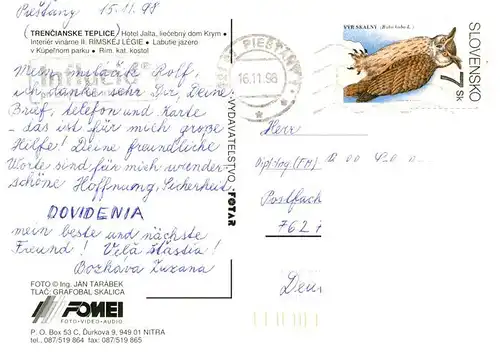 Piešťany 15.11.98
(TRENČIANSKE TEPLICE) Hotel Jalta, liečebný dom Krym •
Interiér vinárne II. RÍMSKEJ LÉGIE • Labutie jazero
v Kúpeľnom parku • Rím. kat. kostol
Mein miláčik Rolf,
ich danke sehr Dir, Deine
Brief, telefon und Karte
- das ist für mich große
Hilfe! Deine freundliche
Worte sind für mich wunder-
schöne Hoffnung, Sicherheit
DOVIDENIA
mein beste und nächste
Freund! Velä štástia!
Zuzana
FOTO © Ing. JÁN TARÁBEK
TLAČ: GRAFOBAL SKALICA
FOMEI
FOTO•VIDEO•AUDIO
P. O. Box 53 C, Ďurkova 9, 949 01 NITRA
tel.: 087/519 864 fax: 087/519 865
VYDAVATEĽSTVO FOTAR
PIEŠŤANY
16.11.98
VÝR SKALNÝ (Bubo bubo L.)
SLOVENSKO
7 Sk
Herr
Dipl-Ing. (FH)
Postfach
762
Deu